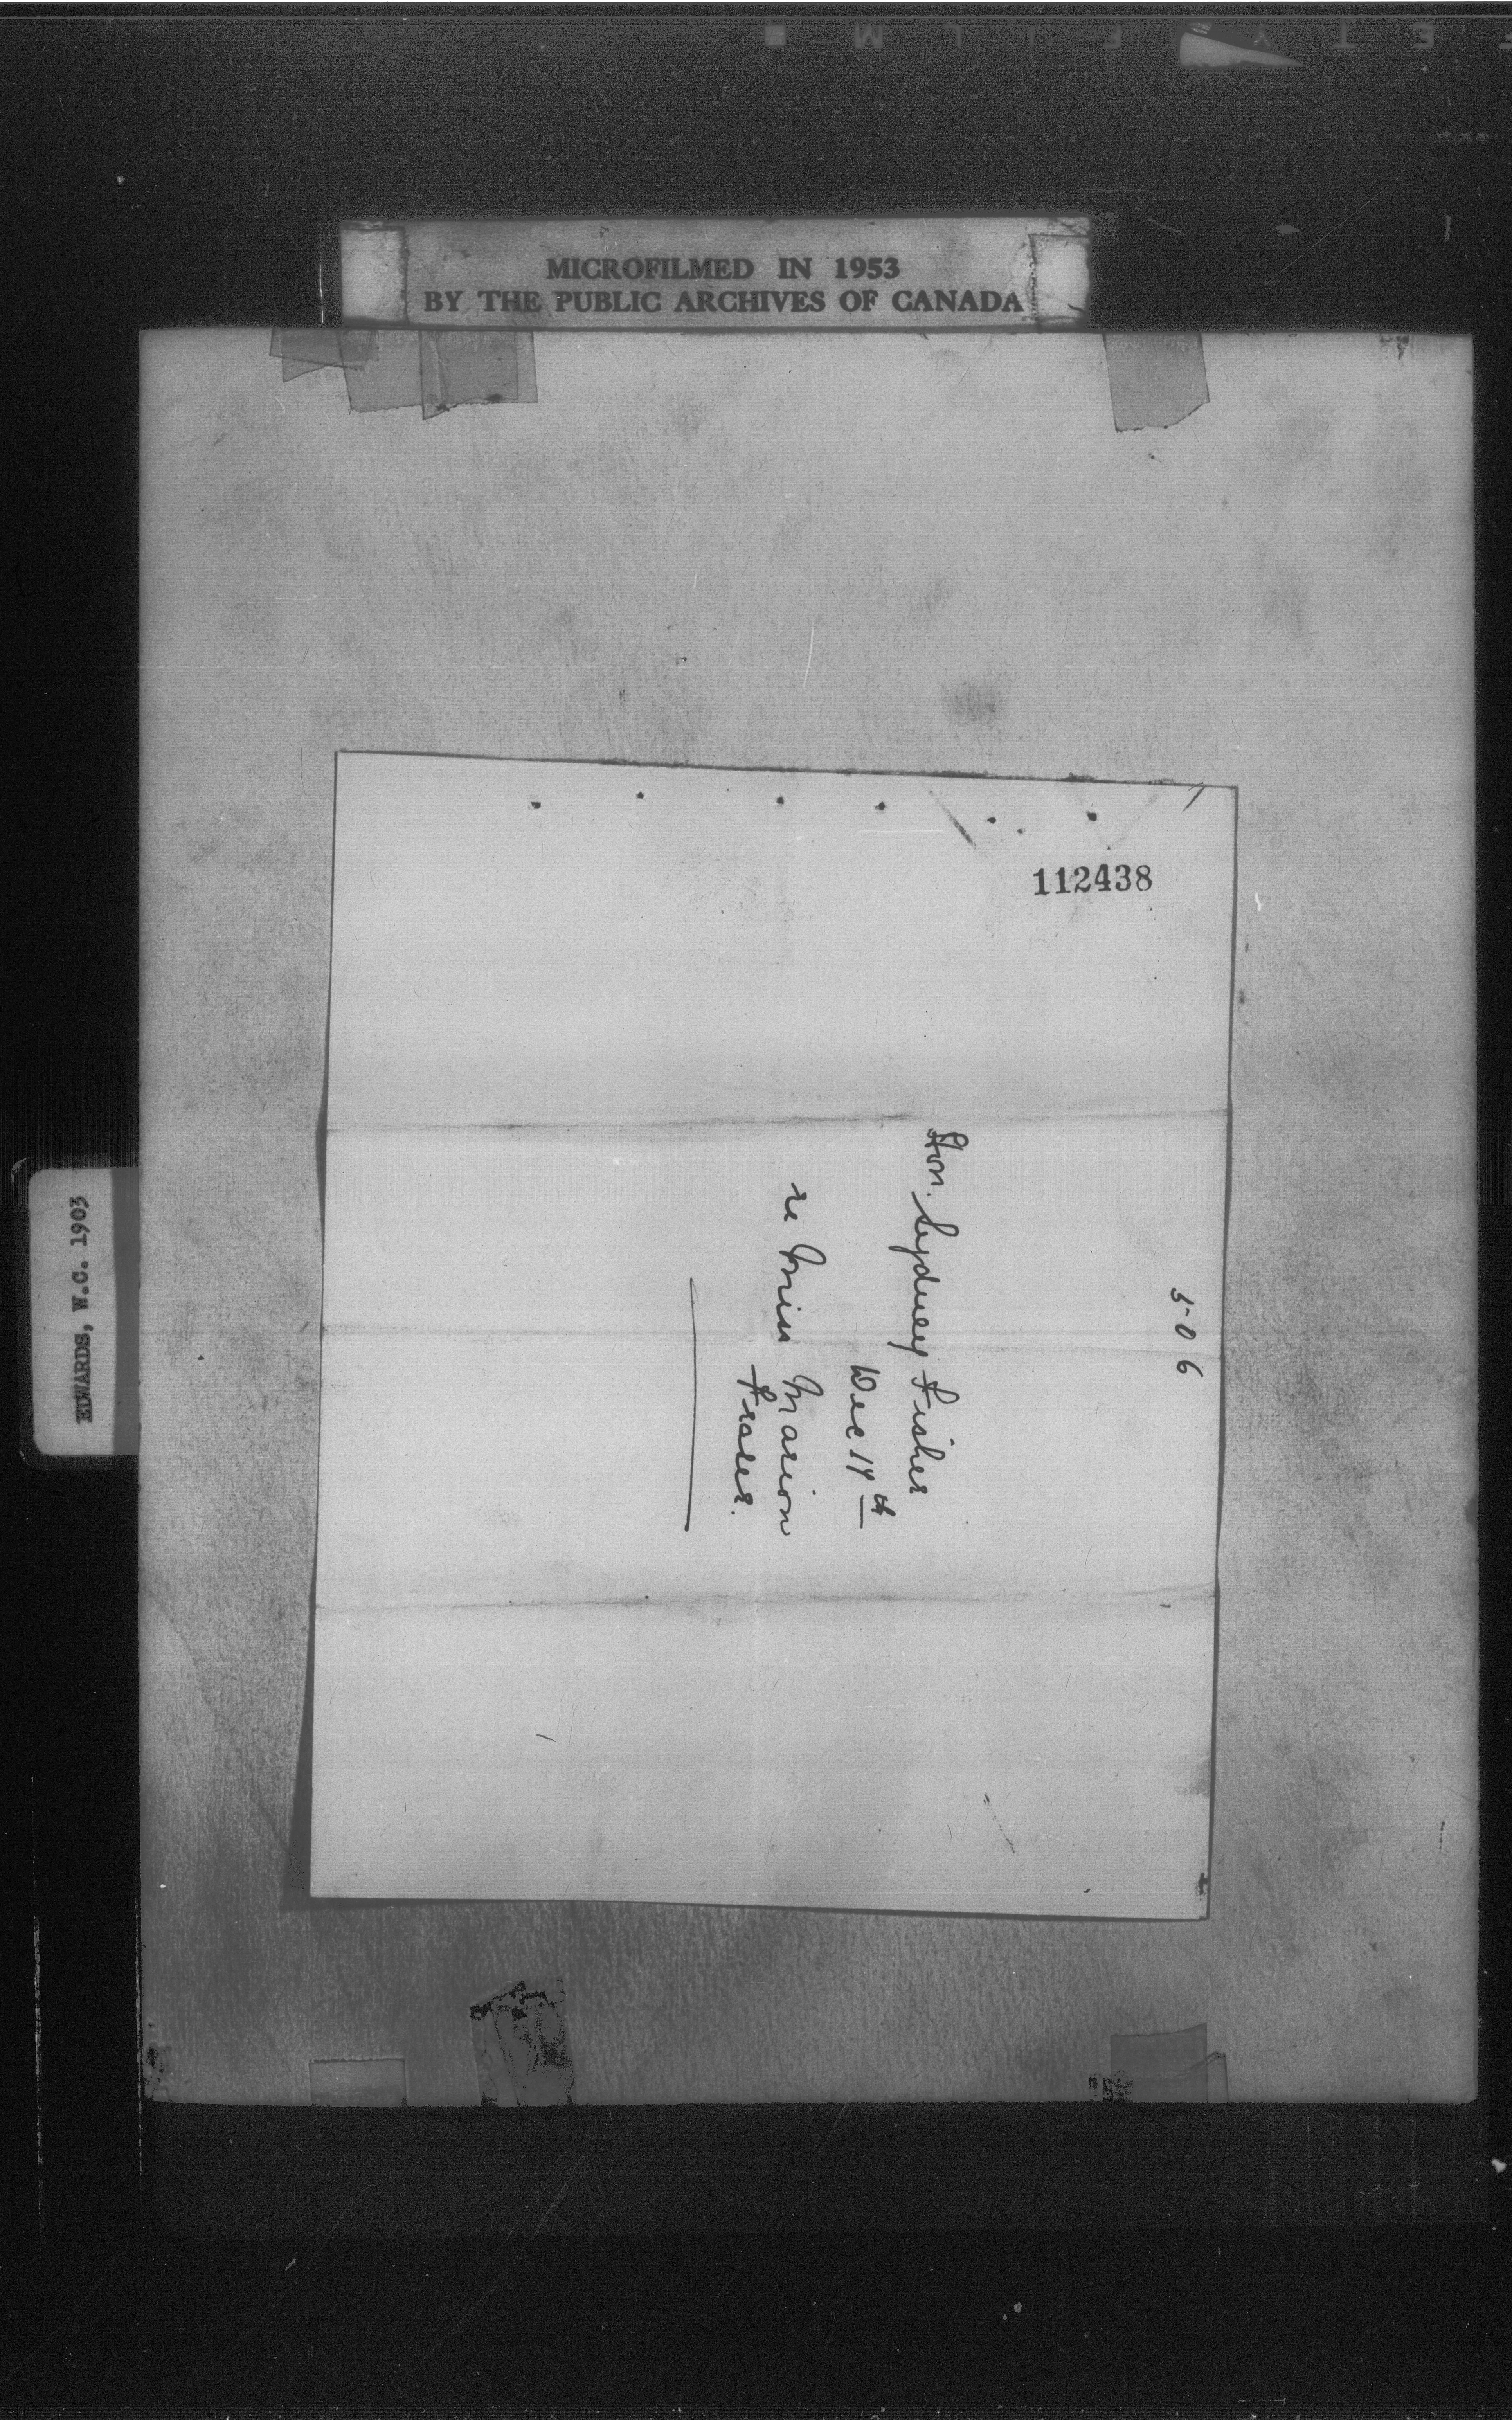 MICROFILMED IN 1953
BY THE PUBLIC ARCHIVES OF CANADA
112438
506
Hon. Sydney Fisher
Dec 19th
re Miss Marion
Fraser.
EDWARDS, W.C. 1903